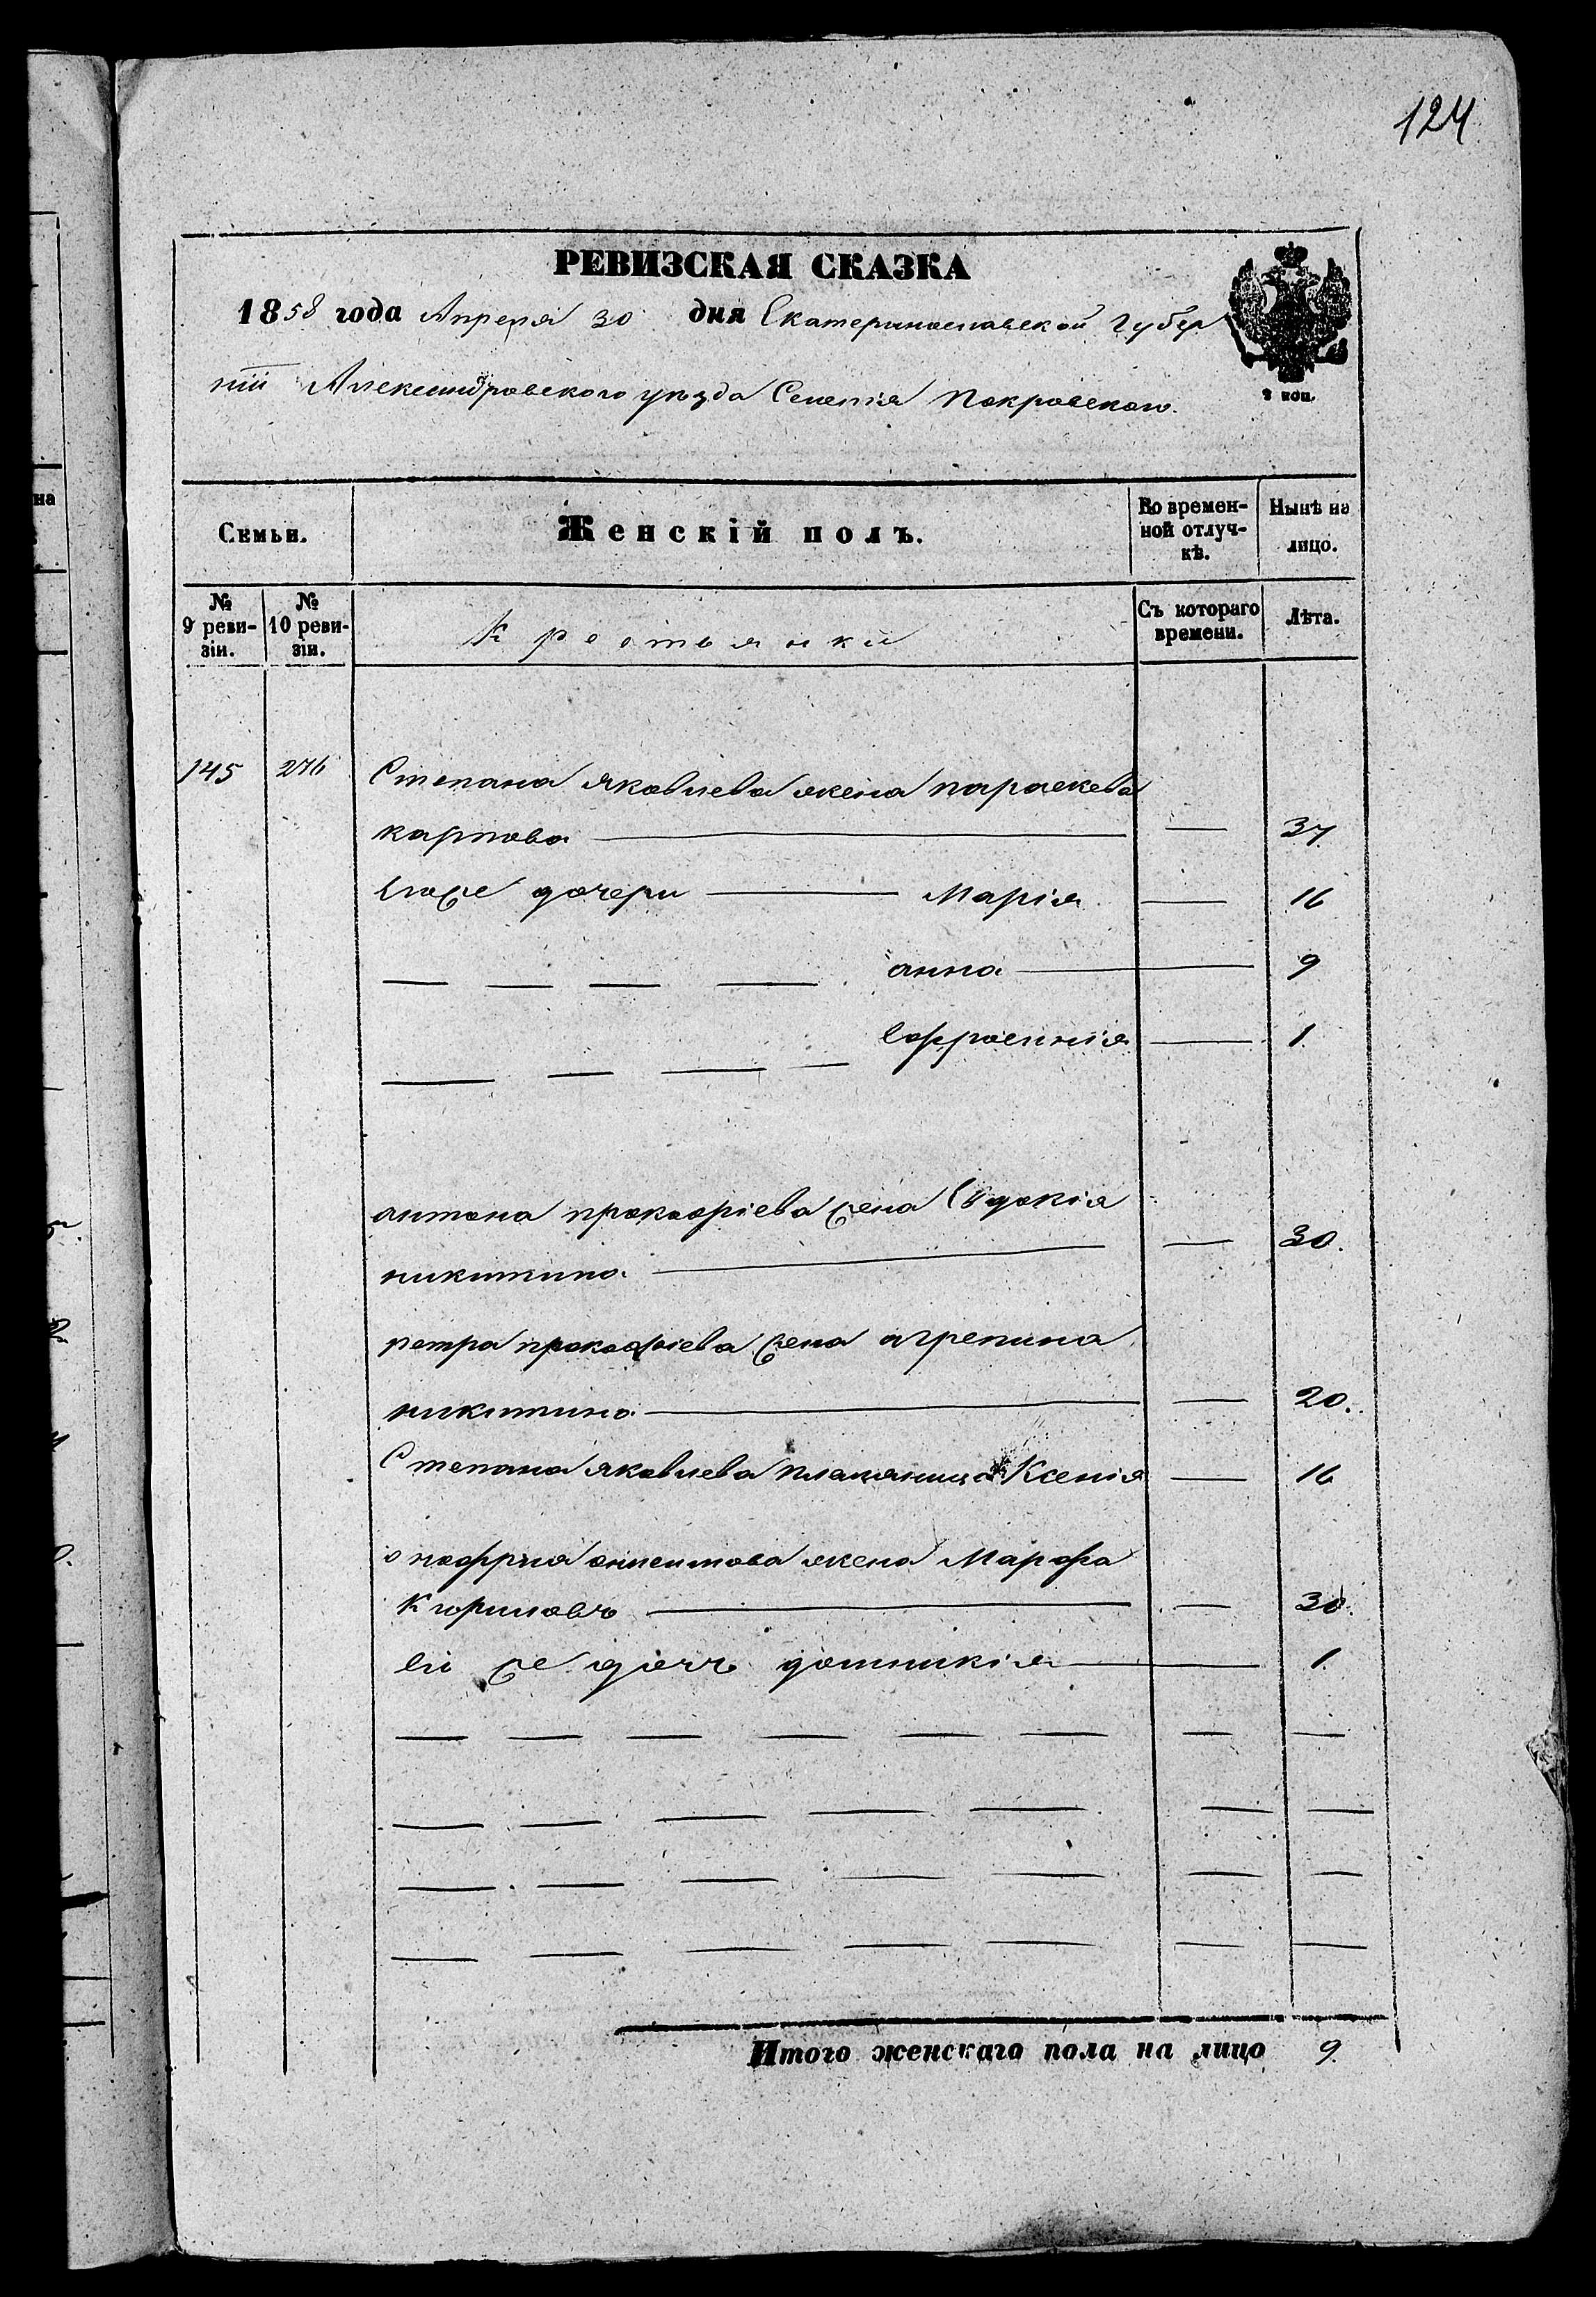 124
РЕВИЗСКАЯ СКАЗКА
1858 года Апреля 30 дня Екатеринославской Губер
ніи Александровского уезда Селенія Покровского.
2 коп.
Семьи.
Женскій полъ.
Во времен-
ной отлуч-
кѣ.
Нынѣ на
лицо.
№
9 реви-
зіи.
№
10 реви-
зіи.
Крестьянки
Съ котораго
времени.
Лѣта.
145 276 Степана яковлева жена параскева
карпова — 37
дочери — Марія — 16
анна — 9
Ефросинія — 1
антона прокофіева жена Евдокія
никитина — 30.
петра прокофіева жена агрепина
никитина — 20.
Степана яковлева племяница Ксенія — 16
онофрия жена Марфа
Кирилова — 30.
ей же дочь домникія — 1
Итого женскаго пола на лицо 9.
на